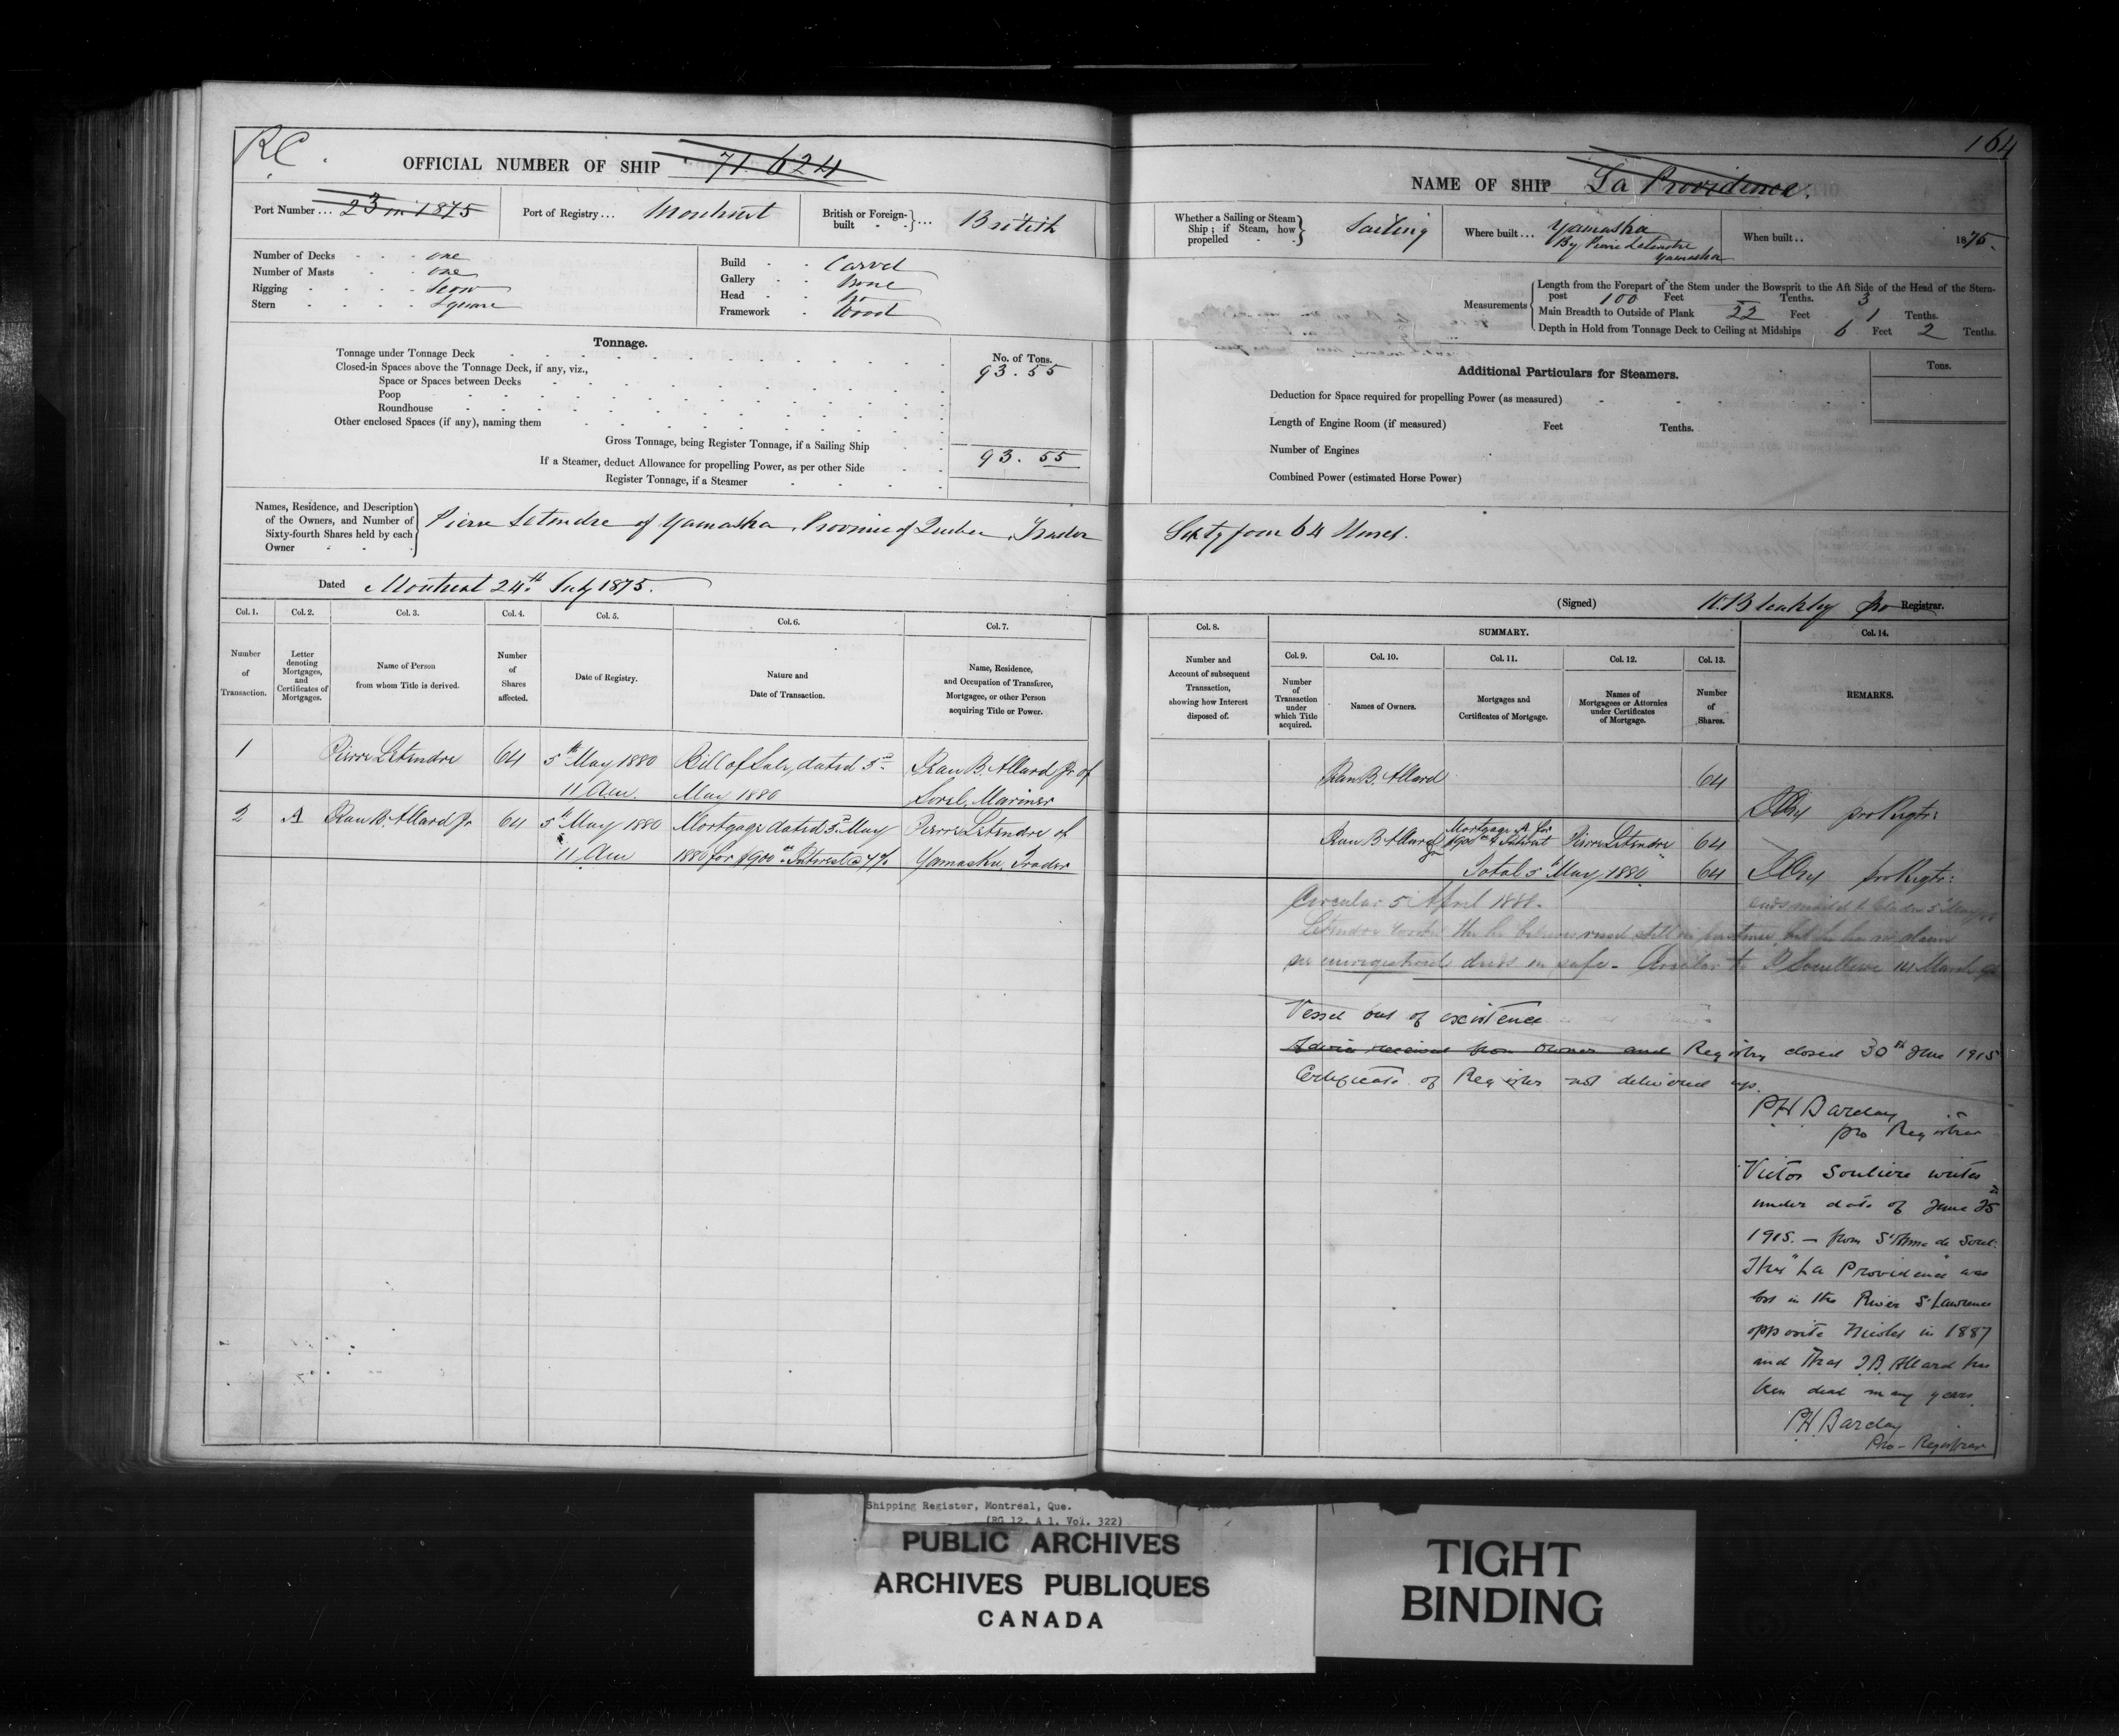 RC.
OFFICIAL NUMBER OF SHIP 71 624
Port Number... 23 in 1875 Port of Registry... Montreal British or Foreign-built ... British
Number of Decks one
Number of Masts one
Rigging Scow
Stern Square
Build Carvel
Gallery None
Head No
Framework Wood
Tonnage.
No. of Tons.
Tonnage under Tonnage Deck 93.55
Closed-in Spaces above the Tonnage Deck, if any, viz.,
Space or Spaces between Decks
Poop
Roundhouse
Other enclosed Spaces (if any), naming them
Gross Tonnage, being Register Tonnage, if a Sailing Ship 93.55
If a Steamer, deduct Allowance for propelling Power, as per other Side
Register Tonnage, if a Steamer
Names, Residence, and Description of the Owners, and Number of Sixty-fourth Shares held by each Owner
Pierre Letendre of Yamaska, Province of Quebec, Trader
Dated Montreal 24th July 1875.
Col. 1. Col. 2. Col. 3. Col. 4. Col. 5. Col. 6. Col. 7.
Number of Transaction.
Letter denoting Mortgages, and Certificates of Mortgages.
Name of Person from whom Title is derived.
Number of Shares affected.
Date of Registry.
Nature and Date of Transaction.
Name, Residence, and Occupation of Transferee, Mortgagee, or other Person acquiring Title or Power.
1 Pierre Letendre 64 5th May 1880 Bill of Sale, dated 5th Jean B. Allard Jr of
11 Am. May 1880 Sorel, Mariner
2 A Jean B. Allard Jr 64 5th May 1880 Mortgage dated 5th May Pierre Letendre of
11 Am 1880 for $900 Interest @ 7% Yamaska, Trader
164
NAME OF SHIP La Providence.
Whether a Sailing or Steam Ship; if Steam, how propelled Sailing
Where built... Yamaska
By Pierre Letendre
Yamaska
When built.. 1875.
Measurements
Length from the Forepart of the Stem under the Bowsprit to the Aft Side of the Head of the Stern-
post 100 Feet Tenths. 3
Main Breadth to Outside of Plank 22 Feet 1 Tenths.
Depth in Hold from Tonnage Deck to Ceiling at Midships 6 Feet 2 Tenths.
Additional Particulars for Steamers.
Tons.
Deduction for Space required for propelling Power (as measured)
Length of Engine Room (if measured) Feet Tenths.
Number of Engines
Combined Power (estimated Horse Power)
Sixty four 64 Shares.
(Signed) W. Bleakley pro Registrar.
Col. 8. SUMMARY. Col. 14.
Col. 9. Col. 10. Col. 11. Col. 12. Col. 13.
Number and Account of subsequent Transaction, showing how Interest disposed of.
Number of Transaction under which Title acquired.
Names of Owners.
Mortgages and Certificates of Mortgage.
Names of Mortgagees or Attornies under Certificates of Mortgage.
Number of Shares.
REMARKS.
Jean B. Allard 64
pro Regtr:
Jean B Allard Jr Mortgage A for $900 & Interest Pierre Letendre 64
Total 5th May 1880 64 pro Regtr:
Circular 5 April 1881.
Letendre still in existence but he has no claim
unregistered deeds in safe. Circular to March
Vessel out of existence
Advice received from Owner and Registry closed 30th June 1915
Certificate of Register not delivered up.
PH Barclay
pro Registrar
Victor Souliere writes
under date of June 25
1915. — from St Anne de Sorel
That "La Providence" was
lost in the River St Lawrence
opposite Nicolet in 1887
and that J.B. Allard has
been dead many years.
PH Barclay
Pro-Registrar
Shipping Register, Montreal, Que.
(RG 12, A 1, Vol. 322)
PUBLIC ARCHIVES
ARCHIVES PUBLIQUES
CANADA
TIGHT
BINDING